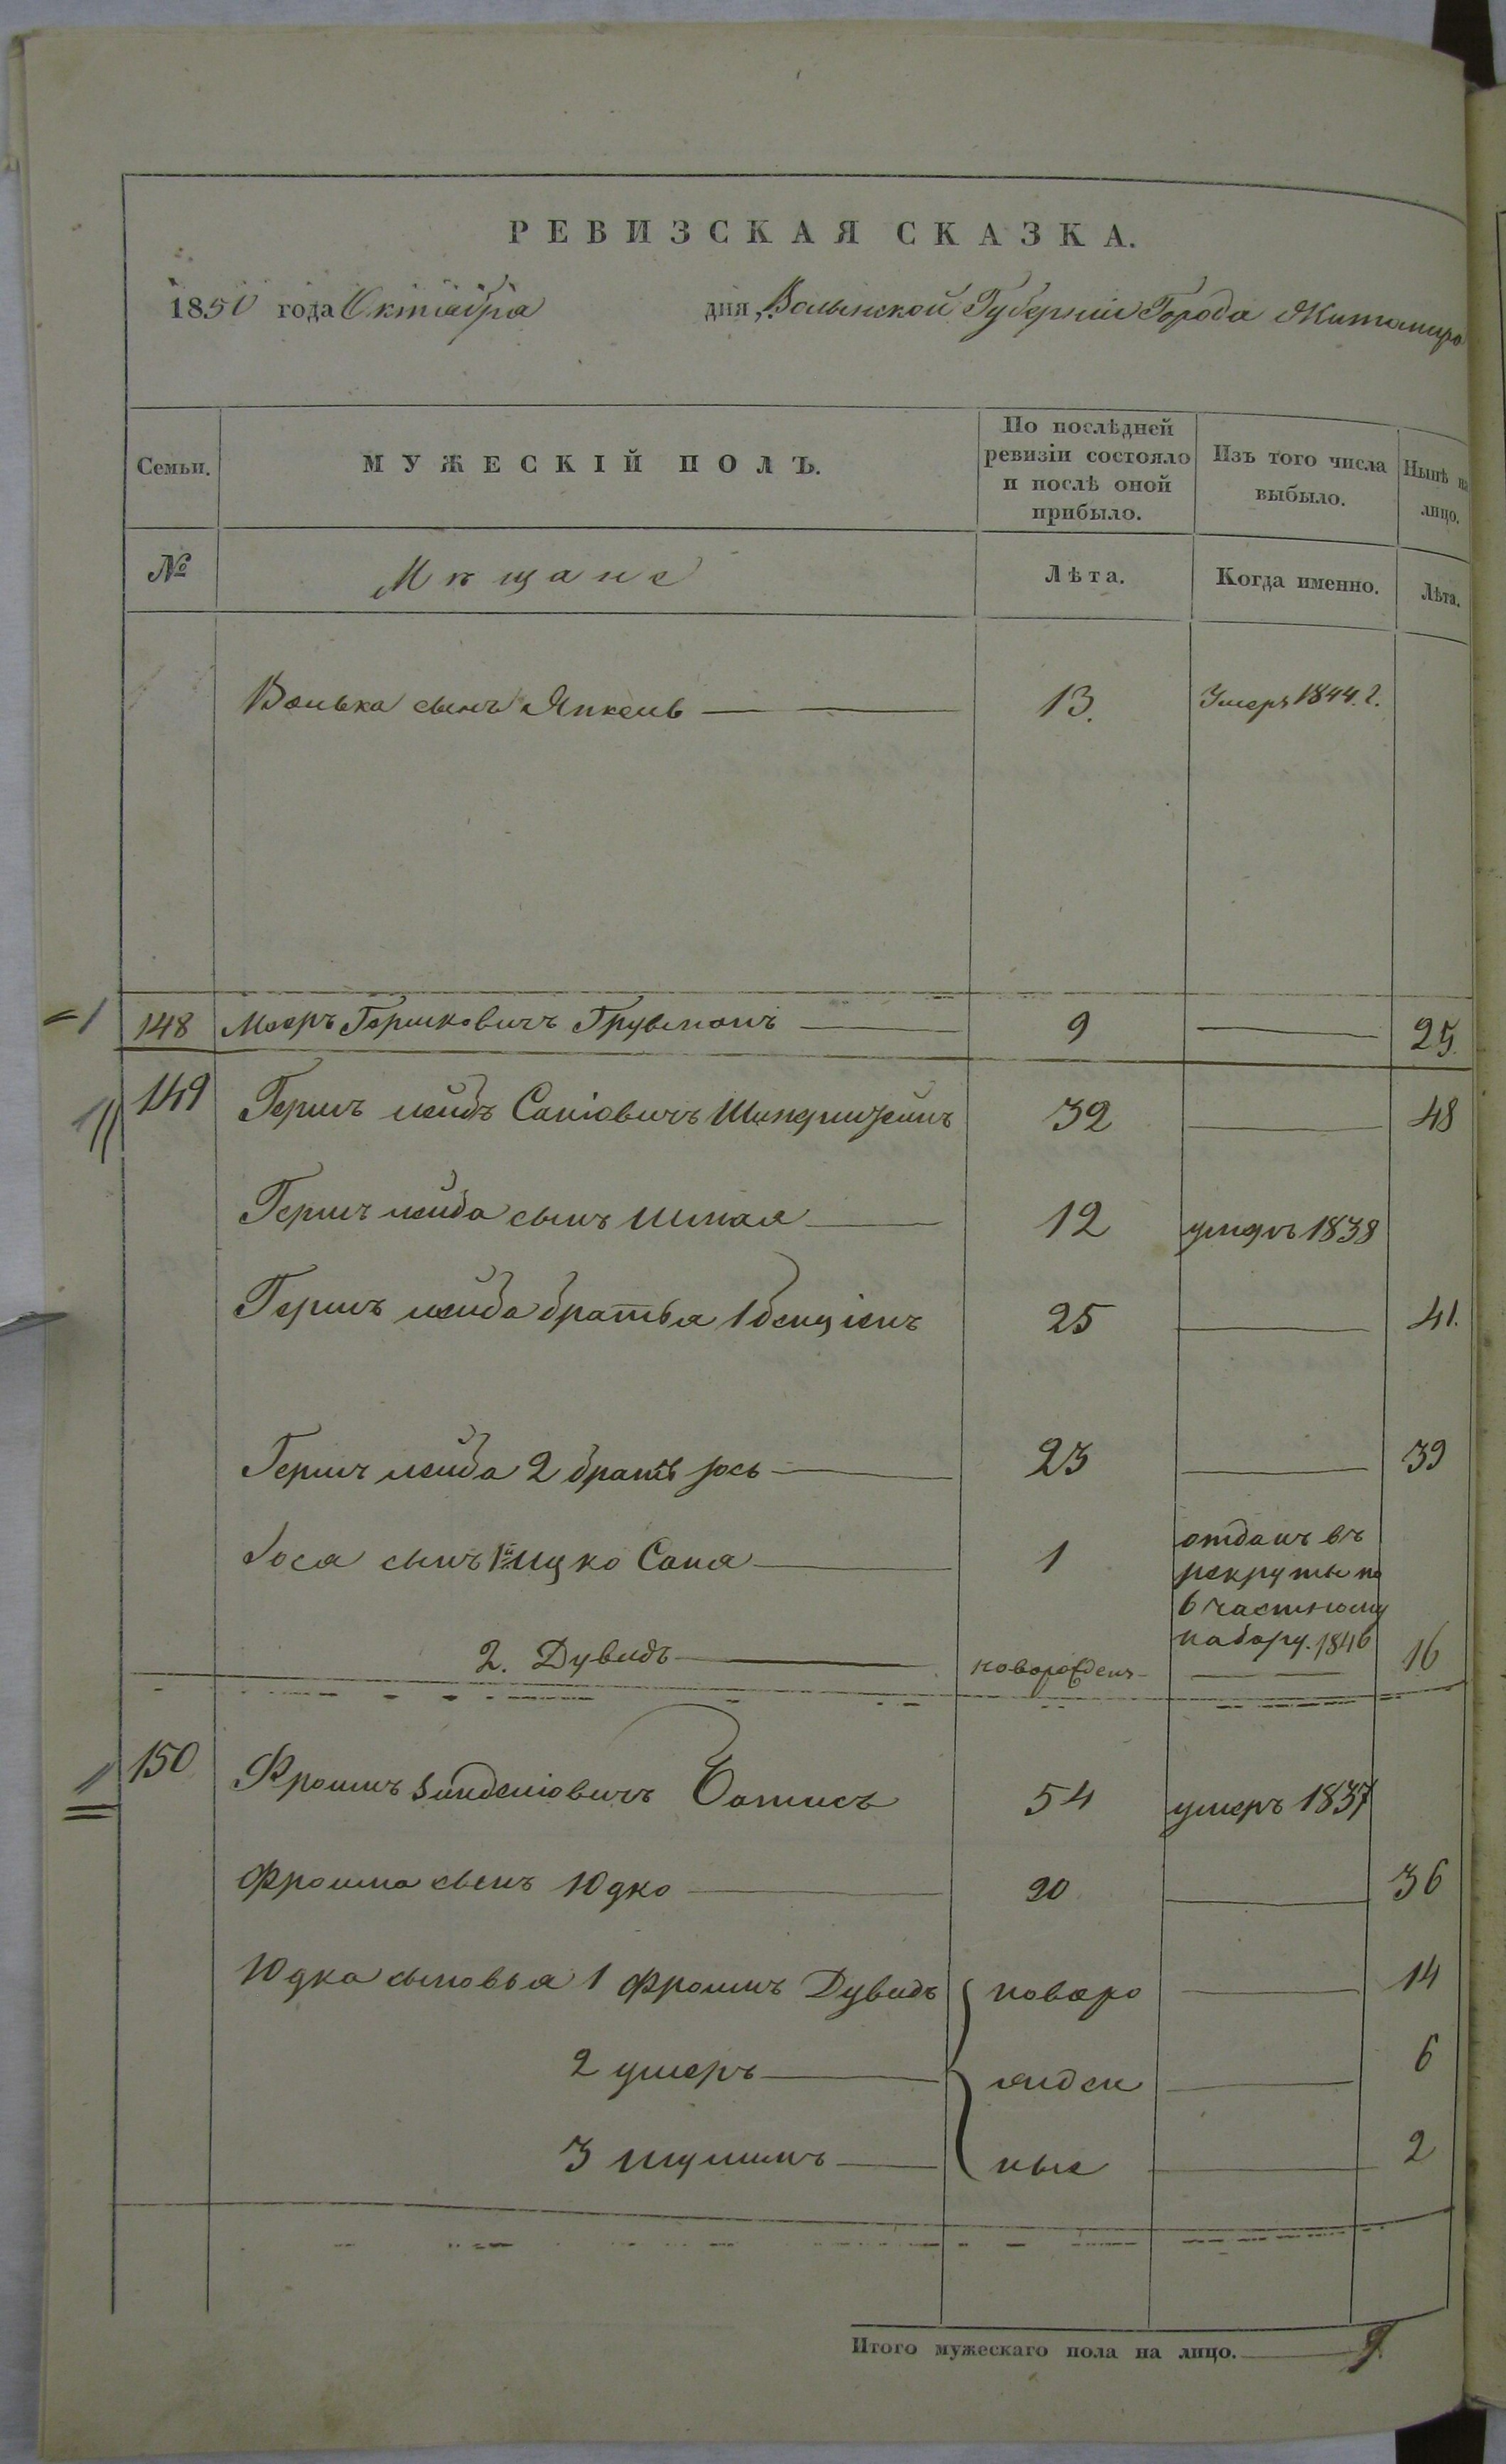 РЕВИЗСКАЯ СКАЗКА.
1850 года Октября дня, Волынской Губерніи Города Житомира
Семьи. МУЖЕСКІЙ ПОЛЪ. По послѣдней ревизіи состояло и послѣ оной прибыло. Изъ того числа выбыло. Нынѣ на лицо.
№ Мѣщане Лѣта. Когда именно. Лѣта.
Волька сынъ Янкель 13. Умеръ 1844. г.
148 Мееръ Гершковичъ 9 25.
149 Гершъ лейбъ 32 48
Гершъ лейба сынъ Шмая 12 умеръ 1838
Гершъ лейба братья 1 бенціенъ 25 41.
Гершъ лейба 2 братъ Іось 23 39
Іоса сынъ 1й Ицко Саня 1 отданъ въ
рекруты по
6 частному
набору. 1846
2. Дувидъ новорожденъ 16
150 Фроимъ 54 умеръ 1837
Фроима сынъ Юдко 20 36
Юдка сыновья 1 Фроимъ Дувидъ новоро 14
2 ушеръ жден 6
3 шулимъ ные 2
Итого мужескаго пола на лицо. 9